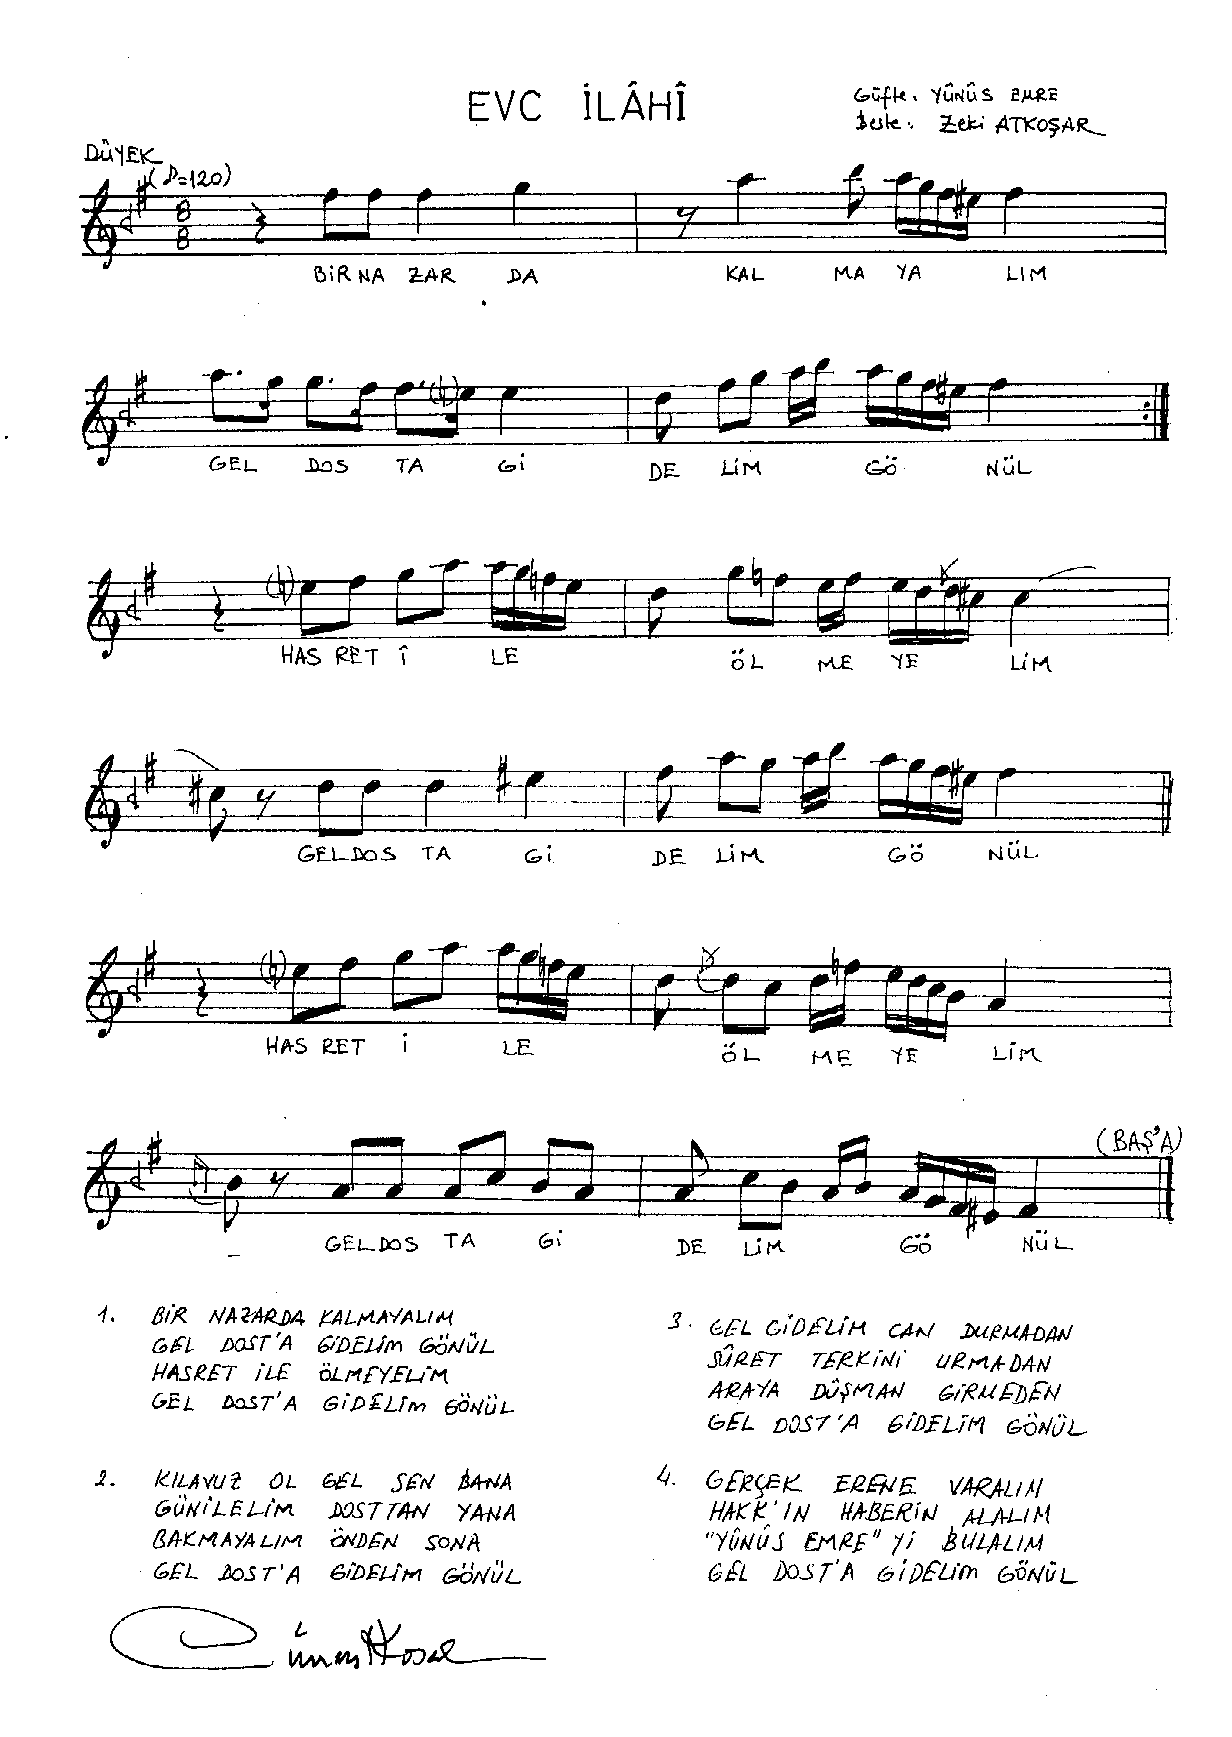 EVC İLÂHÎ
Güfte: YÛNÛS EMRE
Beste: Zeki ATKOŞAR
DÜYEK
(♪=120)
8
8
BİR NA ZAR DA KAL MA YA LIM
GEL DOS TA Gİ DE LİM GÖ NÜL
HAS RET Î LE ÖL ME YE LİM
GEL DOS TA Gİ DE LİM GÖ NÜL
HAS RET İ LE ÖL ME YE LİM
(BAŞ'A)
GEL DOS TA Gİ DE LİM GÖ NÜL
1. BİR NAZARDA KALMAYALIM
GEL DOST'A GİDELİM GÖNÜL
HASRET İLE ÖLMEYELİM
GEL DOST'A GİDELİM GÖNÜL
2. KILAVUZ OL GEL SEN BANA
GÜNİLELİM DOSTTAN YANA
BAKMAYALIM ÖNDEN SONA
GEL DOST'A GİDELİM GÖNÜL
3. GEL GİDELİM CAN DURMADAN
SÛRET TERKİNİ URMADAN
ARAYA DÜŞMAN GİRMEDEN
GEL DOST'A GİDELİM GÖNÜL
4. GERÇEK ERENE VARALIM
HAKK'IN HABERİN ALALIM
"YÛNÛS EMRE" Yİ BULALIM
GEL DOST'A GİDELİM GÖNÜL